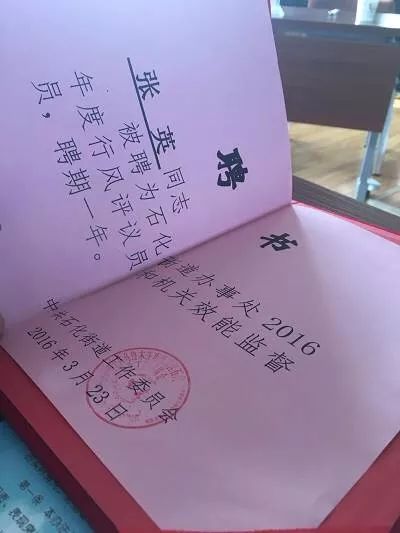 聘 书
张英同志
被聘为石化街道办事处 2016
年度行风评议员和机关效能监督
员，聘期一年。
中共石化街道工作委员会
2016年3月23日
第一条